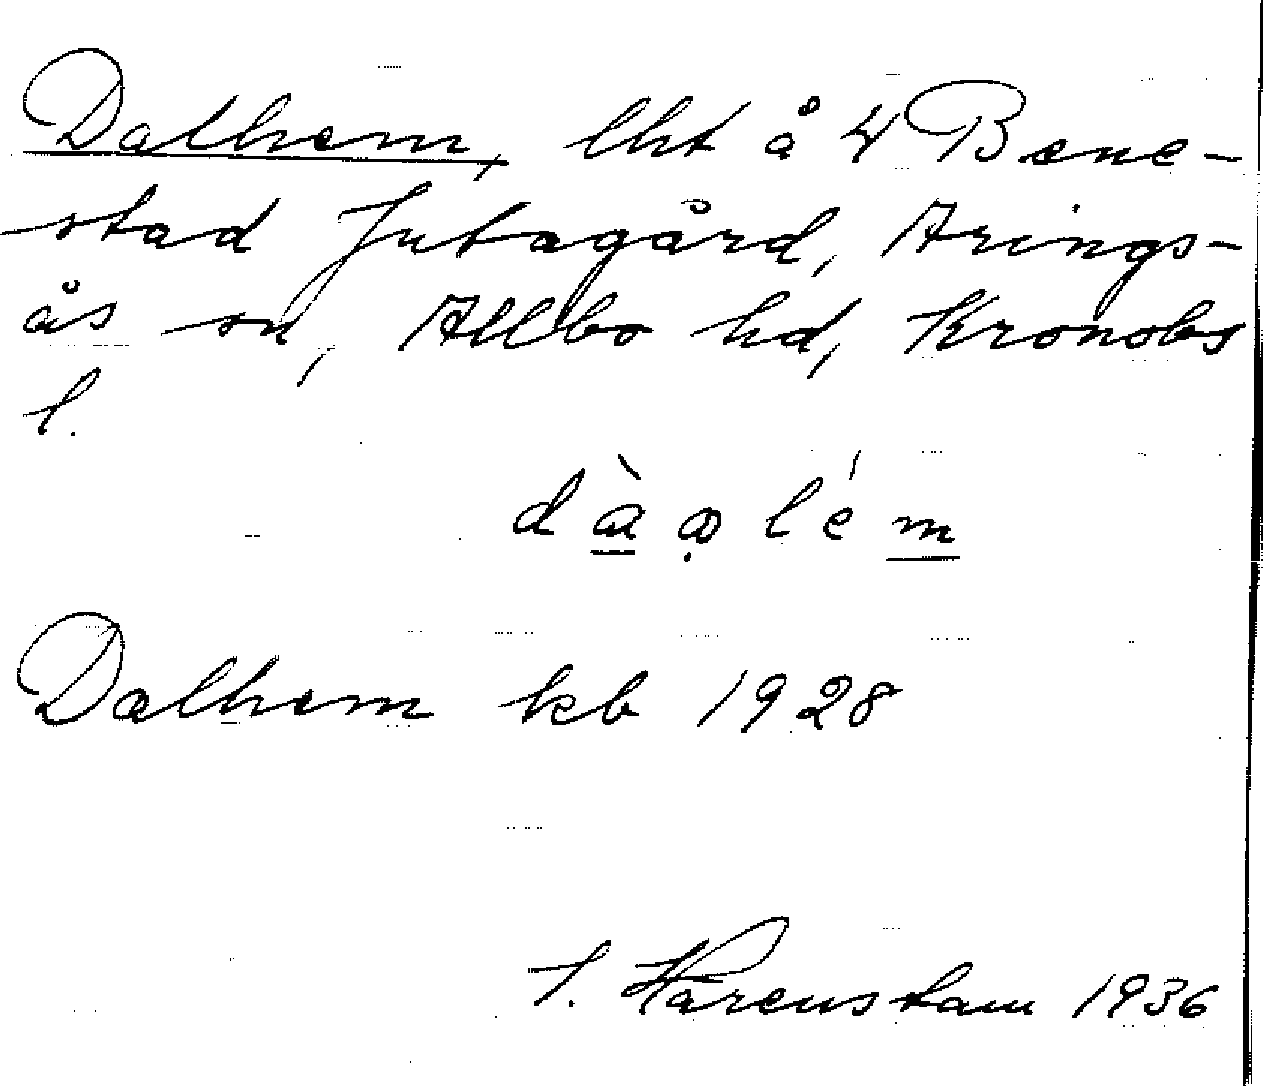 Dalhem, lht å 4 Bene-
stad Jutagård, Arings-
ås sn, Allbo hd, Kronobs
l.
Dalhem kb 1928
1936